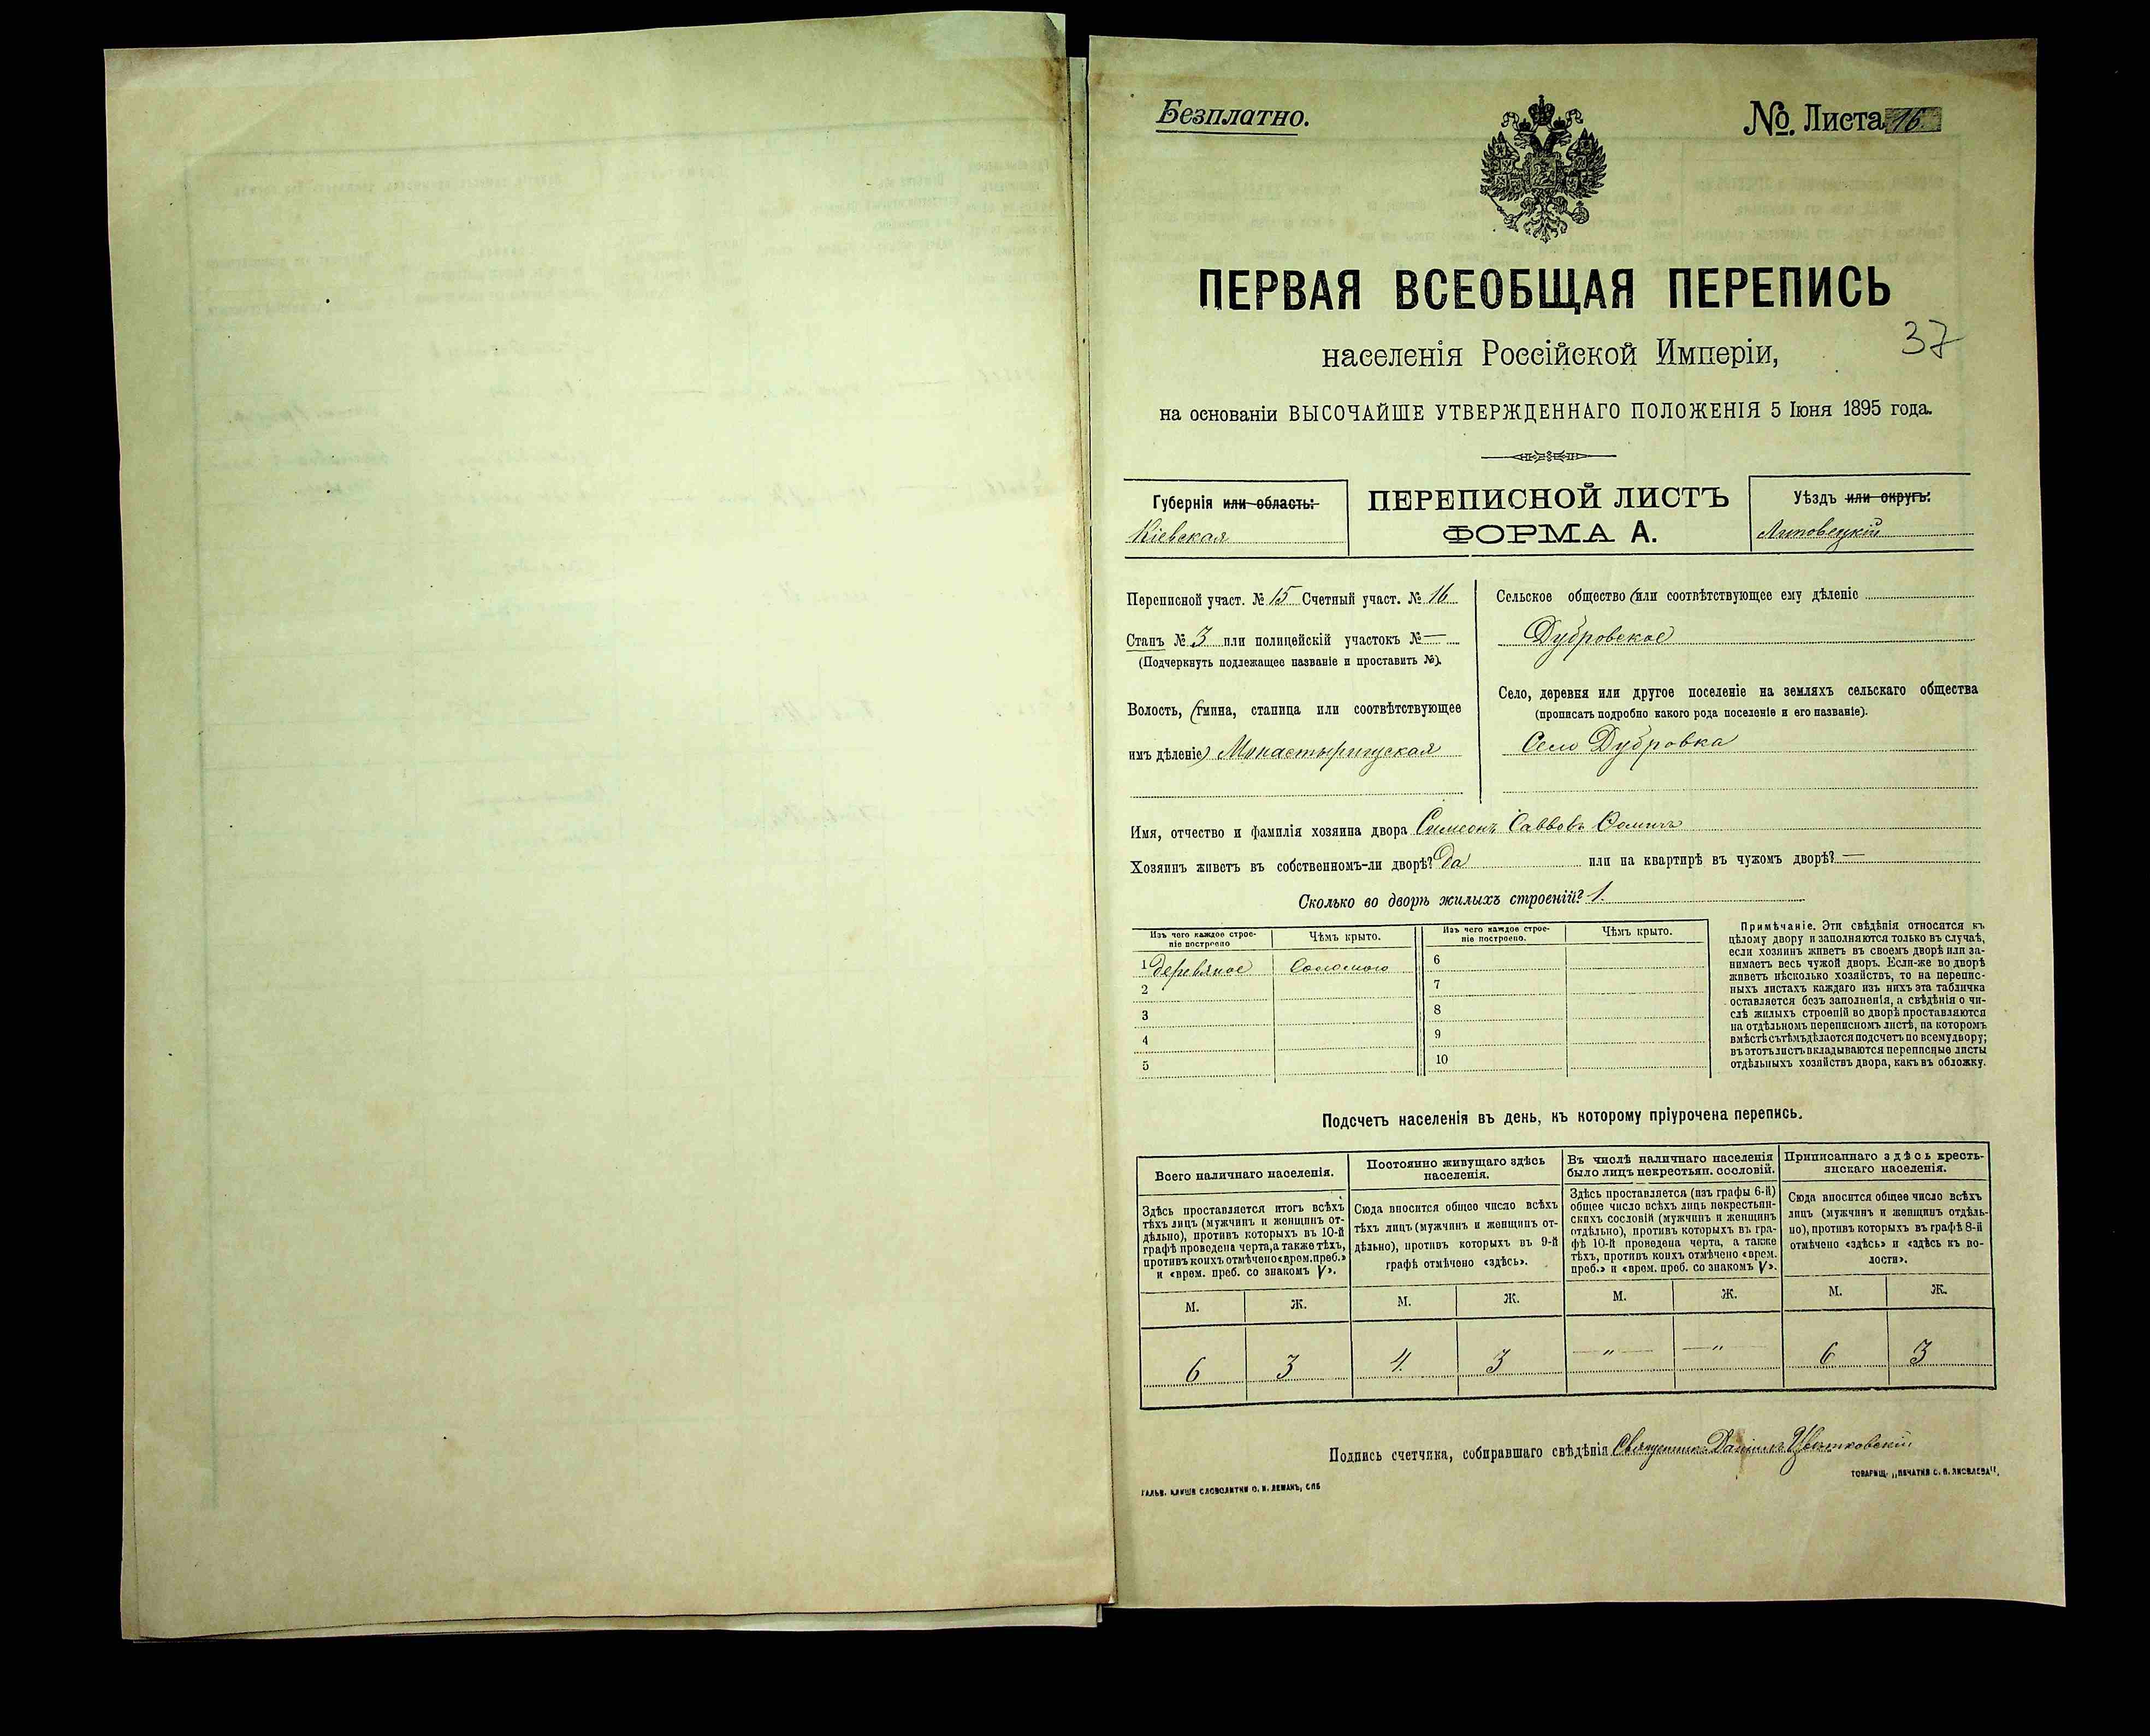 Безплатно.
№. Листа 16
ПЕРВАЯ ВСЕОБЩАЯ ПЕРЕПИСЬ
37
населенія Россійской Имперіи,
на основаніи ВЫСОЧАЙШЕ УТВЕРЖДЕННАГО ПОЛОЖЕНІЯ 5 Іюня 1895 года.
Губернія или область:
Кіевская
ПЕРЕПИСНОЙ ЛИСТЪ
ФОРМА А.
Уѣздъ или округъ:
Липовецкій
Переписной участ. № 15 Счетный участ. № 16
Станъ № 3 или полицейскій участокъ № —
(Подчеркнуть подлежащее названіе и проставить №).
Волость, (гмина, станица или соотвѣтствующее
имъ дѣленіе) Монастырищская
Сельское общество (или соотвѣтствующее ему дѣленіе
Дубровское
Село, деревня или другое поселеніе на земляхъ сельскаго общества
(прописать подробно какого рода поселеніе и его названіе).
Село Дубровка
Имя, отчество и фамилія хозяина двора Симеонъ Саввовъ
Хозяинъ живетъ въ собственномъ-ли дворѣ? Да или на квартирѣ въ чужомъ дворѣ? —
Сколько во дворѣ жилыхъ строеній? 1.
Изъ чего каждое строе-
ніе построено
Чѣмъ крыто.
Изъ чего каждое строе-
ніе построено.
Чѣмъ крыто.
1 деревяное Соломою
2
3
4
5
6
7
8
9
10
Примѣчаніе. Эти свѣдѣнія относятся къ
цѣлому двору и заполняются только въ случаѣ,
если хозяинъ живетъ въ своемъ дворѣ или за-
нимаетъ весь чужой дворъ. Если-же во дворѣ
живетъ нѣсколько хозяйствъ, то на перепис-
ныхъ листахъ каждаго изъ нихъ эта табличка
оставляется безъ заполненія, а свѣдѣнія о чи-
слѣ жилыхъ строеній во дворѣ проставляются
на отдѣльномъ переписномъ листѣ, на которомъ
вмѣстѣ съ тѣмъ дѣлается подсчетъ по всему двору;
въ этотъ листъ вкладываются переписные листы
отдѣльныхъ хозяйствъ двора, какъ въ обложку.
Подсчетъ населенія въ день, къ которому пріурочена перепись.
Всего наличнаго населенія.
Здѣсь проставляется итогъ всѣхъ
тѣхъ лицъ (мужчинъ и женщинъ от-
дѣльно), противъ которыхъ въ 10-й
графѣ проведена черта, а также тѣхъ,
противъ коихъ отмѣчено «врем. преб.»
и «врем. преб. со знакомъ V».
Постоянно живущаго здѣсь
населенія.
Сюда вносится общее число всѣхъ
тѣхъ лицъ (мужчинъ и женщинъ от-
дѣльно), противъ которыхъ въ 9-й
графѣ отмѣчено «здѣсь».
Въ числѣ наличнаго населенія
было лицъ некрестьян. сословій.
Здѣсь проставляется (изъ графы 6-й)
общее число всѣхъ лицъ некрестьян-
скихъ сословій (мужчинъ и женщинъ
отдѣльно), противъ которыхъ въ гра-
фѣ 10-й проведена черта, а также
тѣхъ, противъ коихъ отмѣчено «врем.
преб.» и «врем. преб. со знакомъ V».
Приписаннаго здѣсь кресть-
янскаго населенія.
Сюда вносится общее число всѣхъ
лицъ (мужчинъ и женщинъ отдѣль-
но), противъ которыхъ въ графѣ 8-й
отмѣчено «здѣсь» и «здѣсь къ во-
лости».
М. Ж. М. Ж. М. Ж. М. Ж.
6 3 4 3 — " — — " — 6 3
Подпись счетчика, собиравшаго свѣдѣнія Священникъ Даніилъ Цвѣтковскій
ГАЛЬВ. КЛИШЕ СЛОВОЛИТНИ О. И. ЛЕМАНЪ, СПБ
ТОВАРИЩ. „ПЕЧАТНЯ С. П. ЯКОВЛЕВА".